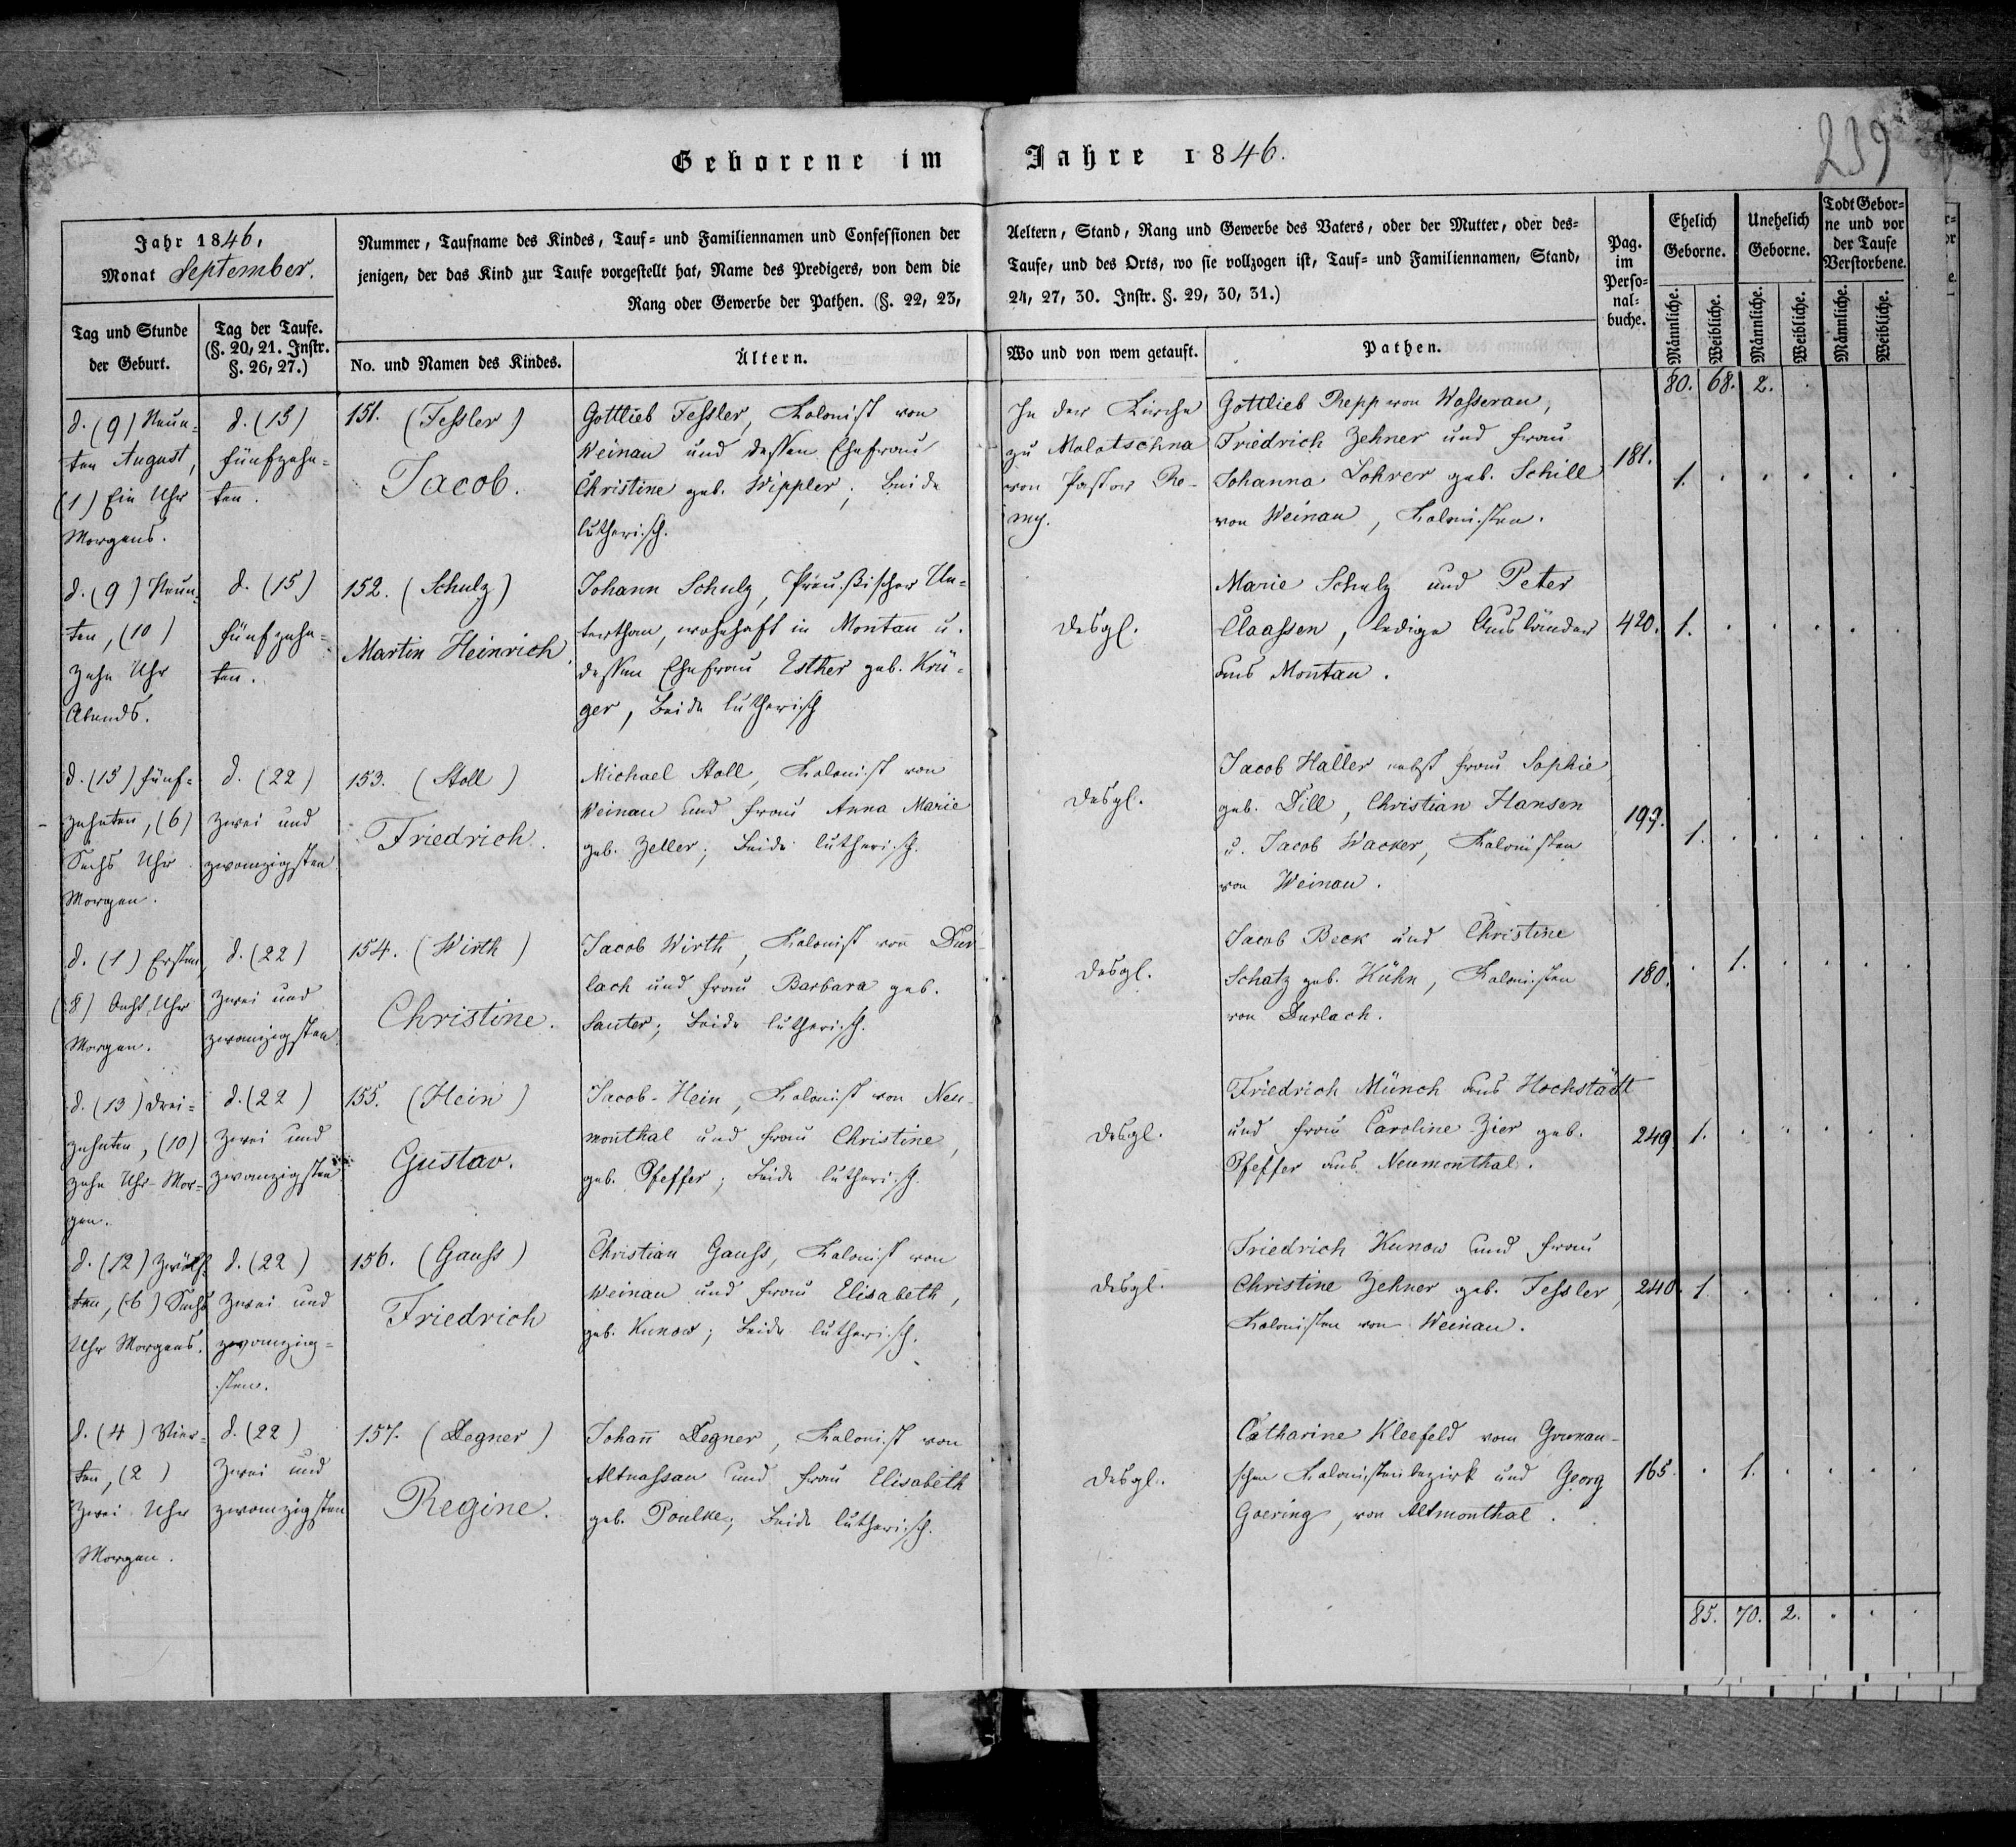 239
Geborene im Jahre 1846.
Jahr 1846.
Monat September.
Nummer, Taufname des Kindes, Tauf- und Familiennamen und Confessionen der Aeltern, Stand, Rang und Gewerbe des Vaters, oder der Mutter, oder des-
jenigen, der das Kind zur Taufe vorgestellt hat, Name des Predigers, von dem die Taufe, und des Orts, wo sie vollzogen ist, Tauf- und Familiennamen, Stand,
Rang oder Gewerbe der Pathen. (§. 22, 23, 24, 27, 30. Instr. §. 29, 30, 31.)
Pag.
im
Perso-
nal-
buche.
Ehelich
Geborne.
Unehelich
Geborne.
Todt Gebor-
ne und vor
der Taufe
Verstorbene.
Tag und Stunde
der Geburt.
Tag der Taufe.
(§. 20, 21. Instr.
§. 26, 27.)
No. und Namen des Kindes.
Ältern.
Wo und von wem getauft.
Pathen.
Männliche. Weibliche. Männliche. Weibliche. Männliche. Weibliche.
80. 68. 2.
d. (9) Neun-
ten August,
(1) Ein Uhr
Morgens.
d. (15)
fünfzehn-
ten.
151. (Fessler)
Jacob.
Gottlieb Fessler, Kolonist von
Weinau und dessen Ehefrau
Christine geb. Wippler; Beide
lutherisch.
In der Kirche
zu Molotschna
von Pastor Ro-
my.
Gottlieb Repp von Wasserau,
Friedrich Zehner und Frau
Johanna Lohrer geb. Schill
von Weinau, Kolonisten.
181.
1.
d. (9) Neun-
ten, (10)
Zehn Uhr
Abends.
d. (15)
fünfzehn-
ten.
152. (Schulz)
Martin Heinrich
Johann Schulz, Preußischer Un-
terthan, wohnhaft in Montau u.
dessen Ehefrau Esther geb. Krü-
ger, Beide lutherisch
desgl.
Marie Schulz und Peter
Claassen, ledige Ausländer
aus Montau.
420.
1.
d. (15) fünf-
zehnten, (6)
Sechs Uhr
Morgen.
d. (22)
zwei und
zwanzigsten
153. (Stoll)
Friedrich.
Michael Stoll, Kolonist von
Weinau und Frau Anna Marie
geb. Zeller; Beide lutherisch.
desgl.
Jacob Haller nebst Frau Sophie
geb. Dill, Christian Hansen
u. Jacob Wacker, Kolonisten
von Weinau.
199.
1.
d. (1) Ersten,
(8) Acht Uhr
Morgen.
d. (22)
zwei und
zwanzigsten
154. (Wirth)
Christine.
Jacob Wirth, Kolonist von Dur-
lach und Frau Barbara geb.
Sauter; Beide lutherisch.
desgl.
Jacob Beck und Christine
Schatz geb. Kühn, Kolonisten
von Durlach.
180.
1.
d. (13) drei-
zehnten, (10)
zehn Uhr Mor-
gen.
d. (22)
zwei und
zwanzigsten
155. (Hein)
Gustav.
Jacob Hein, Kolonist von Neu-
monthal und Frau Christine,
geb. Pfeffer; Beide lutherisch.
desgl.
Friedrich Münch aus Hochstädt
und Frau Caroline Zier geb.
Pfeffer aus Neumonthal.
249
1.
d. (12) Zwölf-
ten, (6) Sechs
Uhr Morgens.
d. (22)
Zwei und
zwanzig-
sten.
156. (Gauss)
Friedrich
Christian Gauss, Kolonist von
Weinau und Frau Elisabeth,
geb. Kunow; Beide lutherisch.
desgl.
Friedrich Kunow und Frau
Christine Zehner geb. Fessler,
Kolonisten von Weinau.
240.
1.
d. (4) Vier-
ten, (2)
Zwei Uhr
Morgen.
d. (22)
Zwei und
zwanzigsten
157. (Degner)
Regine.
Johann Degner, Kolonist von
Altnassau und Frau Elisabeth
geb. Poulke; Beide lutherisch.
desgl.
Catharine Kleefeld vom Grunau-
schen Kolonistenbezirk und Georg
Goering, von Altmonthal.
165.
1.
85. 70. 2.